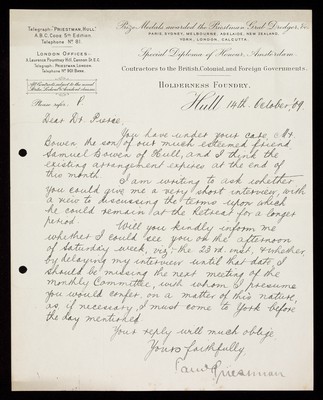 Telegraph: "PRIESTMAN, HULL"
A.B.C. Code 5th Edition
Telephone No 81
LONDON OFFICES:-
Telegraph: PRIESTMAN LONDON
Prize Medals awarded the Priestman Grab Dredger, &c.
PARIS, SYDNEY, MELBOURNE, ADELAIDE, NEW ZEALAND,
YORK, LONDON, CALCUTTA.
Special Diploma of Honour, Amsterdam.
Contractors to the British, Colonial, and Foreign Governments.
HOLDERNESS FOUNDRY.
Please refer P.
Hull 14th October, 09
Dear Dr. Pierce,
You have under your care, Mr.
Bowen the son of our much esteemed friend
Samuel Bowen of Hull, and I think the
existing arrangement expires at the end of
this month.
I am writing to ask whether
you could give me a very short interview, with
a view to discussing the terms upon which
he could remain at the Retreat for a longer
period.
Will you kindly inform me
whether I could see you on the afternoon
of Saturday week, viz, the 23rd inst, & whether
by delaying my interview until that date, I
should be missing the next meeting of the
monthly Committee, with whom I presume
you would confer, on a matter of this nature,
as, if necessary, I must come to York before
the day mentioned
Your reply will much oblige
Yours faithfully.
Priestman